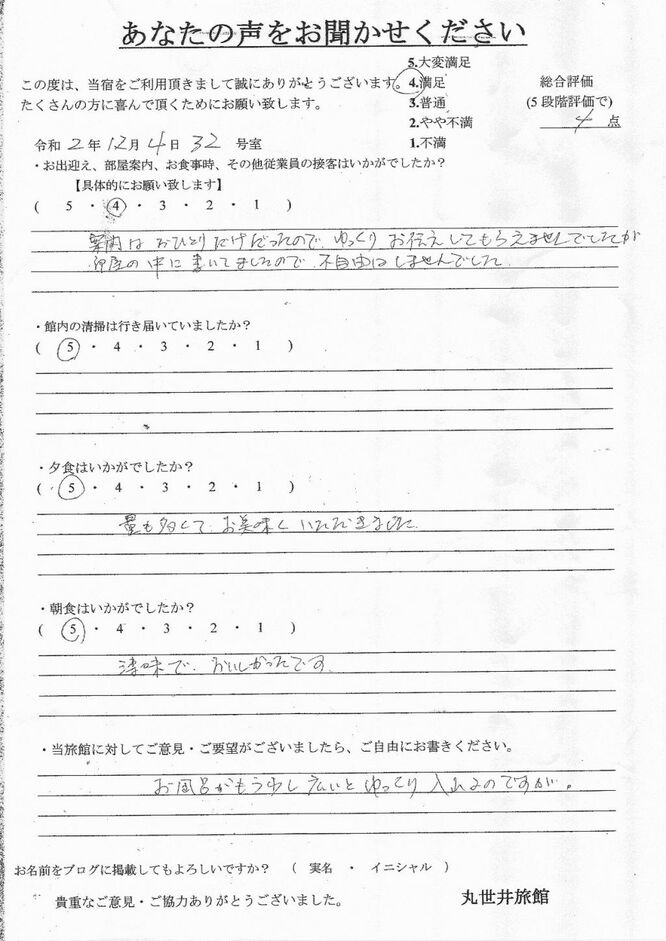 あなたの声をお聞かせください
この度は、当宿をご利用頂きまして誠にありがとうございます。
たくさんの方に喜んで頂くためにお願い致します。
5.大変満足
4.満足
3.普通
2.やや不満
1.不満
総合評価
(5段階評価で)
4 点
令和 2 年 12 月 4 日 32 号室
・お出迎え、部屋案内、お食事時、その他従業員の接客はいかがでしたか?
【具体的にお願い致します】
( 5 ・ 4 ・ 3 ・ 2 ・ 1 )
案内はおひとりだけだったので、ゆっくりお伝えしてもらえませんでしたが
部屋の中に書いてましたので、不自由はしませんでした。
・館内の清掃は行き届いていましたか?
( 5 ・ 4 ・ 3 ・ 2 ・ 1 )
・夕食はいかがでしたか?
( 5 ・ 4 ・ 3 ・ 2 ・ 1 )
量も多くて、お美味しくいただきました。
・朝食はいかがでしたか?
( 5 ・ 4 ・ 3 ・ 2 ・ 1 )
薄味で、おいしかったです。
・当旅館に対してご意見・ご要望がございましたら、ご自由にお書きください。
お風呂がもう少し広いとゆっくり入れるのですが。
お名前をブログに掲載してもよろしいですか? ( 実名 ・ イニシャル )
貴重なご意見・ご協力ありがとうございました。
丸世井旅館